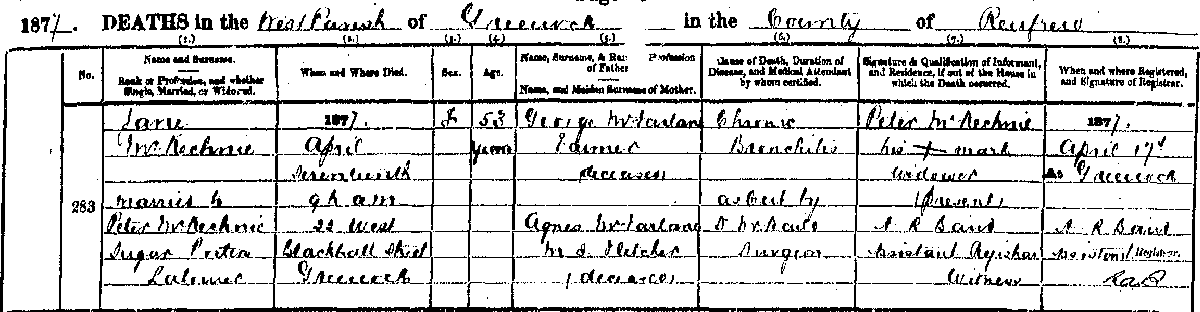 1877. DEATHS in the West Parish of Greenock in the County of Renfrew
(1.) (2.) (3.) (4.) (5.) (6.) (7.) (8.)
No. Name and Surname. When and Where Died. Sex. Age. Name, Surname, & Ran of Father Profession Cause of Death, Duration of Disease, and Medical Attendant by whom certified. Signature & Qualification of Informant, and Residence, if out of the House in which the Death occurred. When and where Registered, and Signature of Registrar.
Rank or Profession, and whether Single, Married, or Widowed. Name, and Maiden Surname of Mother.
Jane 1877. F 53 George McFarlane Chronic Peter McKechnie 1877.
McKechnie April years Farmer Bronchitis his + mark April 17th
Seventeenth deceased Widower At Greenock
283 married to 9h am as Cert by (Present)
Peter McKechnie 22 West Agnes McFarlane D A R Baird A R Baird
Sugar Porters Blackhall Street M.S. Fletcher Surgeon Assistant Registrar Assistant Registrar.
Labourer Greenock (deceased) Witness